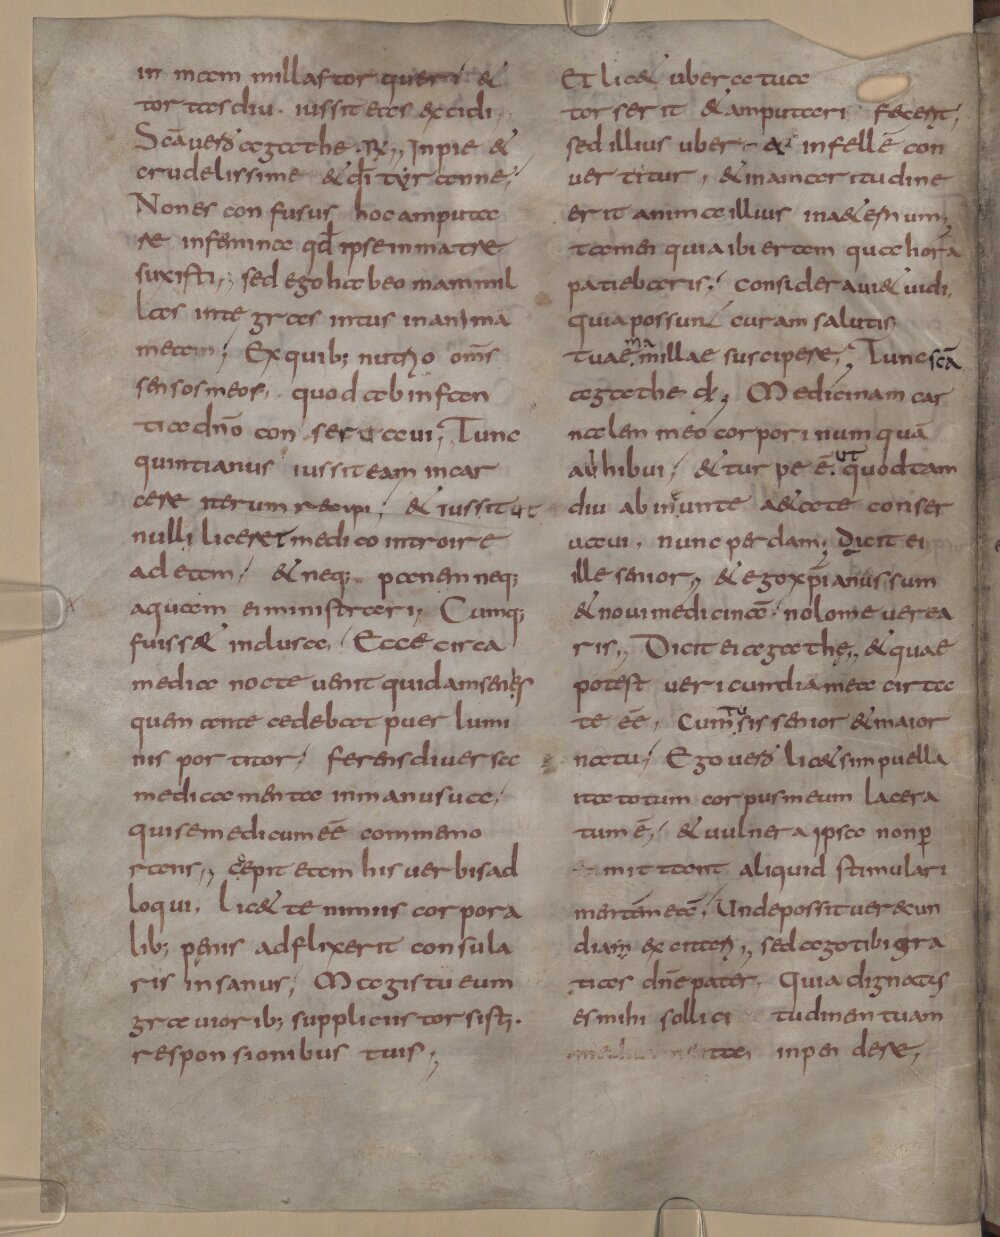 in mam millas torqueri &
tortas diu. iussit eas excidi,
Scā verō agathe. Rx,, Inpie &
crudelissime & dī tyranne,
Non es confusus hoc amputa
re in femina qd ipse in matre
suxisti,, sed ego habeo mammil
las integras intus in anima
meam; Ex quib; nutrio oms
sensos meos, quod ab infan
tia dn̄o conseraui, Tunc
quintianus iussit eam in car
cere iterum recipi, & iussit ut
nulli liceret medico introire
ad eam, & neq; panem neq;
aquam ei ministrari,, Cumq;
fuiss& inclusa, Ecce circa
media nocte uenit quidam senex
quem ante cedebat puer lumi
nis portitor, ferens diuersa
medicamenta in manu sua,
qui se medicum eē commemo
rans,, cepit eam his uerbis ad
loqui. lic& te nimiis corpora
lib; penis adflixerit consula
ris insanus, Magis tu eum
grauiorib; suppliciis torsisti.
responsionibus tuis,
Et lic& ubera tua
torserit & amputari fecerit,
sed illius uber & in fellē con
uertitur, & in amaritudine
erit anima illius in a&ernum,
tamen quia ibi eram qua hora
patiebaris, consideraui & uidi,
quia possunt curam salutis
tuae mamillae suscipere, Tunc scā
agathe d̄, Medicinam car
nalem meo corpori numquā
adhibui, & turpe ē. ut quod tam
diu ab iniunte a&ate conser
uaui. nunc perdam, Dicit ei
ille senior,, & ego xp̄ianus sum
& noui medicinā nolo me uerea
ris,, Dicit ei agathe,, & quae
potest uericundia mea circa
te eē, Cum tu sis senior & maior
natu, Ego verō lic& sim puella
ita totum corpus meum lacera
tum ē, & uulnera ipsa non p̄
mittant aliquid stimulari
mentem eā, Unde possit uerecun
diam excitari,, sed ago tibi gra
tias dn̄e pater, Quia dignatus
es mihi sollicitudinem tuam
inpendere,